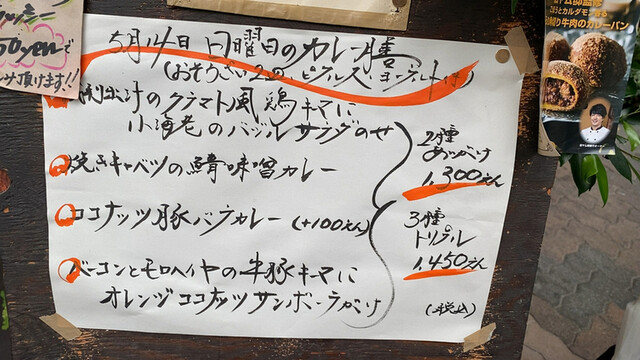 5月14日日曜日のカレー膳
(おそうざい2の、ピクルス、ヨーグルト付)
出汁のクラマト風鶏キマに
小海老のバジルサラダのせ
焼きキャベツの鯖味噌カレー
ココナッツ豚バラカレー (+100えん)
ベーコンとモロヘイヤの牛豚キーマに
オレンジココナッツサンボーラがけ
2種
あいがけ
1,300えん
3種
トリプル
1,450えん
(税込)
50yenで
頂けます!!
とカルダモン香る
牛肉のカレーパン